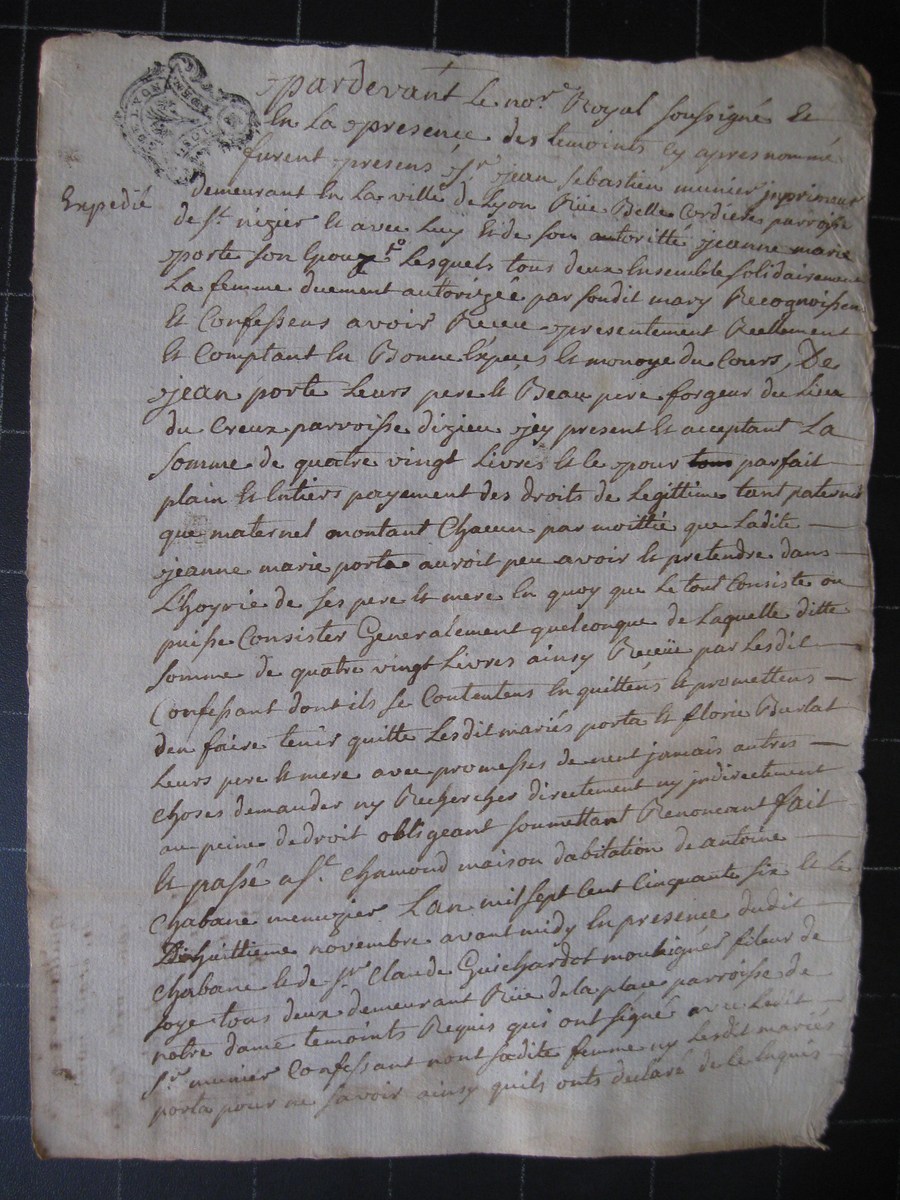 pardevant Le no.re Royal soussigné Et
En La presence des temoints cy apres nommé
furent presens S.r jean sebastien munier jmprimeur
Expedié
demeurant En La ville de Lyon Rüe Belle Cordiere parroisse
de S.t nizier Et avec Luy Et de son autoritté jeanne marie
porte son Epouze Lesquels tous deux Ensemble solidairement
La femme duement autorizeé par sondit mary Recognoissen
Et Confessens avoir Receu presentement Reellement
Et Comptant En Bonne Especes Et monoye du Cours, De
jean porte Leurs pere Et Beau pere forgeur du Lieu
du Creux parroisse dizieu jcy present Et acceptant La
somme de quatre vingt Livres Et ce pour parfait
plain Et Entiers payement des droits de Legittime tant paterne
que maternel montant Chacun par moittié que Ladite
jeanne marie porta auroit peu avoir Et pretendre dans
L'hoyrie de ses pere Et mere En quoy que Le tout Consiste ou
puisse Consister Generalement quelconque de Laquelle ditte
somme de quatre vingt Livres ainsy Receüe par Lesdit
Confessant dont ils se Contentens En quittens Et promettens
den faire tenir quitte Lesdit mariés porta Et florie Burlat
Leurs pere Et mere avec promesses de neut jamais autres
choses demander ny Rechercher directement ny jndirectement
au peine de droit obligeant soumettant Renoncant fait
Et passé a S.t chamond maison dabitation de antoine
Chabane menuzier Lan mil sept Cent Cinquante six Et Le
Dixhuittieme novembre avant midy En presence dudit
Chabane Et de s.r Claude Guichardot fileur de
soye tous deux demeurant Rüe de la place parroisse de
notre dame temoints Requis qui ont signé avec Ledit
S.r munier Confessant non sadite femme ny Lesdit mariés
porta pour ne savoir ainsy quils onts declaré de ce Enquis